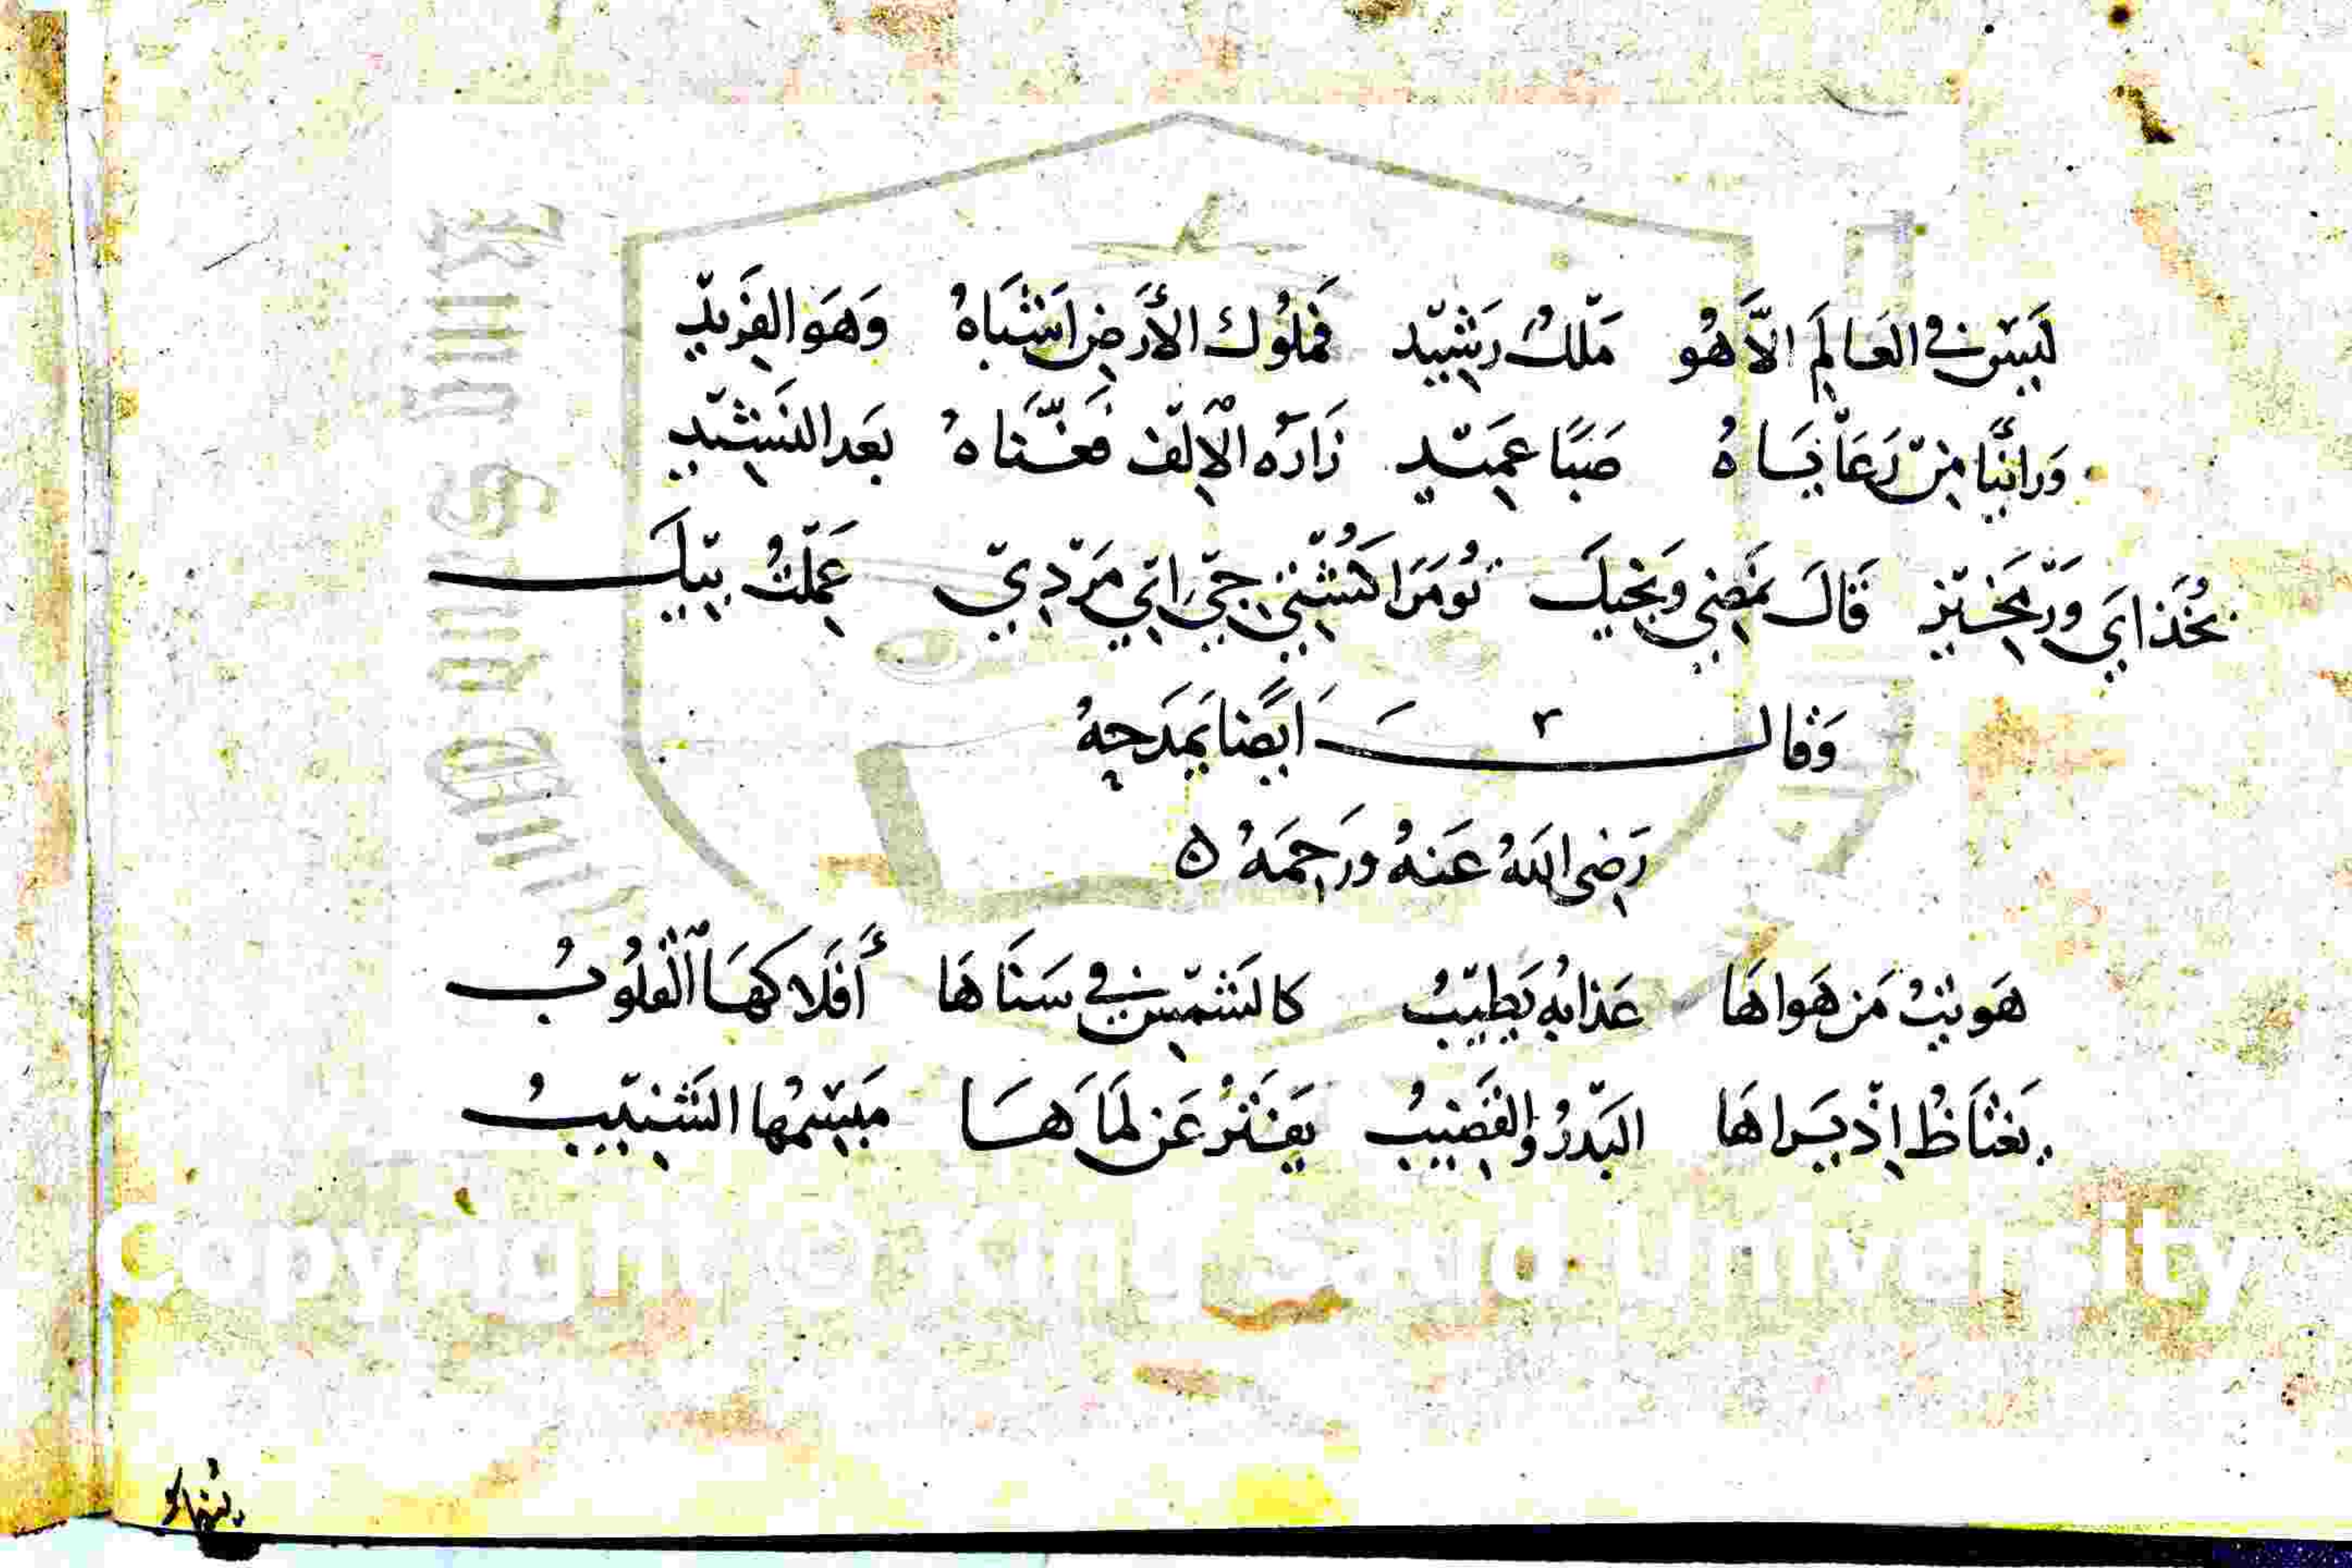 لَيْسَ فِي العَالَمِ الَّا هُو مَلْكٌ رَشِيْد فَمُلُوكُ الأَرْضِ اَشْبَاهُ وَهَو الفَرِيْدِ
وَرانًّا مِنْ رَعَايَاهُ صَبًا عَمِيْدِ زَارَهُ الْاِلْف فَغَنَّاهُ بَعَد النَشِيْدِ
بخُذَايَ وَرْمَخِيْز قَالَ تمضِي وَنجيكَ تُومَرَا كُشْتِي جِي اِتي مَرْدِيْ عَمِلْتُ بِيْكَ
وَقَالَ اَيضًا يَمِدَحِهُ
رَضِى اللهُ عَنهُ وَرَحِمَهُ ه
هَويتُ مَن هَواهَا عَذابُه يَطِيْبُ كالشَمْسِ فِي سَنَاهَا أَفلَاكهَا الْقلُوبُ
يَغتَاظُ اِذْ يَراهَا البَدْرُ والقَضِيبُ يَفتَرُ عَن لَمَاهَا مَبْسَمُها الشَنِيْبُ
Copyright © King Saud University
King Saud Univ